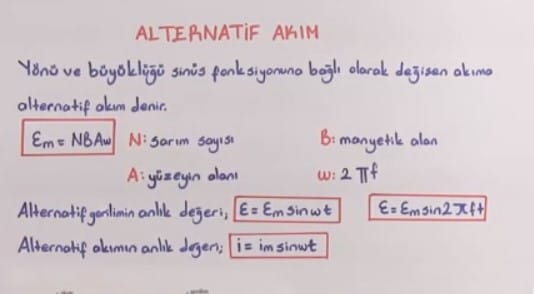 ALTERNATİF AKIM
Yönü ve büyüklüğü sinüs fonksiyonuna bağlı olarak değişen akıma
alternatif akım denir.
Ɛm = NBAw N: sarım sayısı B: manyetik alan
A: yüzeyin alanı w: 2πf
Alternatif gerilimin anlık değeri; Ɛ = Ɛm sinwt Ɛ = Ɛm sin2πft
Alternatif akımın anlık değeri; i = im sinwt